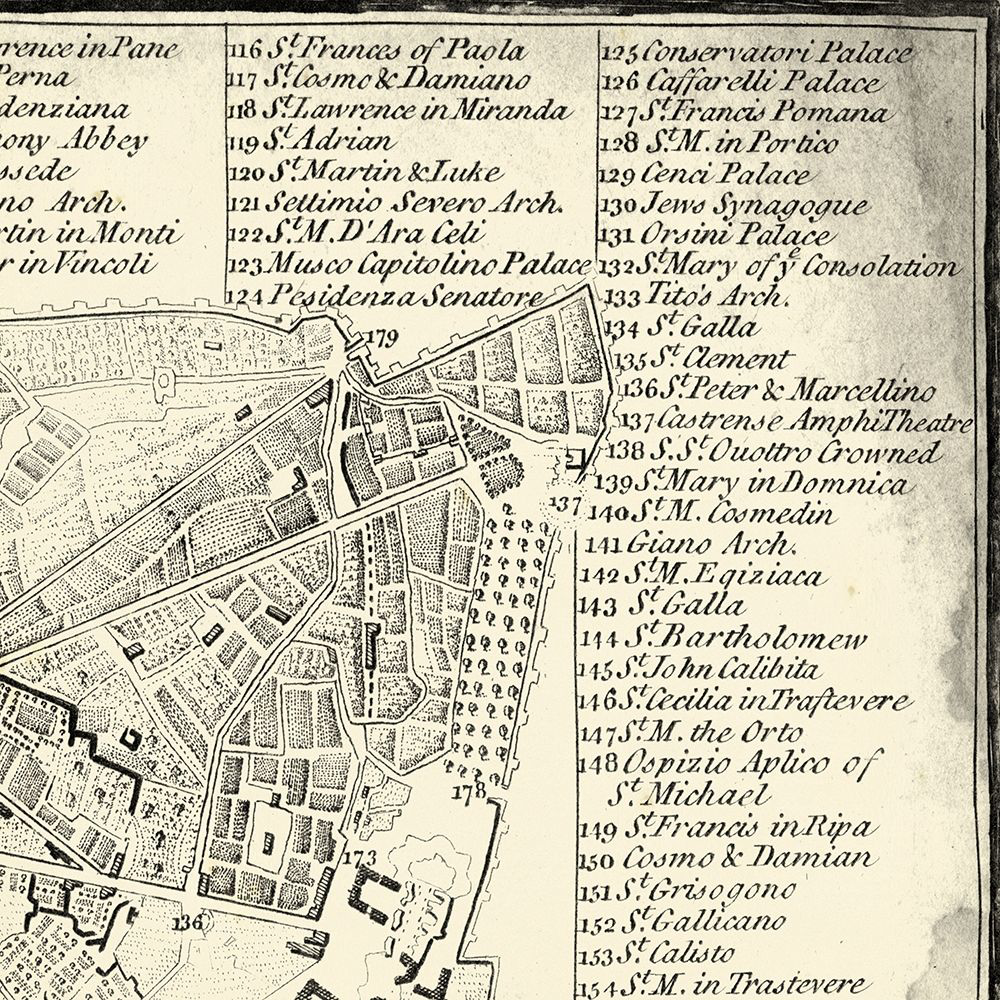 rence in Pane
Perna
denziana
ony Abbey
ssede
no Arch.
rtin in Monti
r in Vincoli
116 St. Frances of Paola
117 St. Cosmo & Damiano
118 St. Lawrence in Miranda
119 St. Adrian
120 St. Martin & Luke
121 Settimio Severo Arch.
122 St. M. D'Ara Celi
123 Musco Capitolino Palace
124 Pesidenza Senatore
125 Conservatori Palace
126 Caffarelli Palace
127 St. Francis Pomana
128 St. M. in Portico
129 Cenci Palace
130 Jews Synagogue
131 Orsini Palace
132 St. Mary of ye Consolation
133 Tito's Arch.
134 St. Galla
135 St. Clement
136 St. Peter & Marcellino
137 Castrense AmphiTheatre
138 S. St. Ouottro Crowned
139 St. Mary in Domnica
140 St. M. Cosmedin
141 Giano Arch.
142 St. M. Egiziaca
143 St. Galla
144 St. Bartholomew
145 St. John Calibita
146 St. Cecilia in Trastevere
147 St. M. the Orto
148 Ospizio Aplico of
St. Michael
149 St. Francis in Ripa
150 Cosmo & Damian
151 St. Grisogono
152 St. Gallicano
153 St. Calisto
154 St. M. in Trastevere
179
137
178
173
136